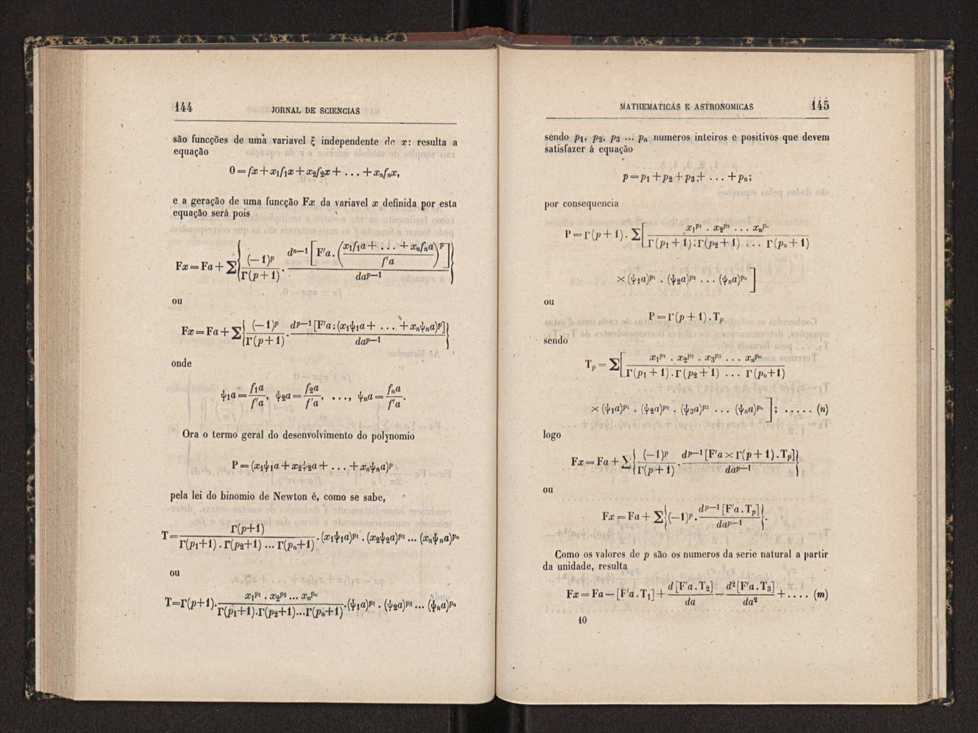 144
JORNAL DE SCIENCIAS
são funcções de uma variavel ξ independente de x: resulta a
equação
0=fx+x₁f₁x+x₂f₂x+ . . . +xₙfₙx,
e a geração de uma funcção Fx da variavel x definida por esta
equação será pois
Fx=Fa+Σ{ (—1)ᵖ/Γ(p+1) . dᵖ⁻¹[F'a.((x₁f₁a+ . . . +xₙfₙa)/f'a)ᵖ]/daᵖ⁻¹ }
ou
Fx=Fa+Σ{ (—1)ᵖ/Γ(p+1) . dᵖ⁻¹[F'a.(x₁ψ₁a+ . . . +xₙψₙa)ᵖ]/daᵖ⁻¹ }
onde
ψ₁a=f₁a/f'a, ψ₂a=f₂a/f'a, . . ., ψₙa=fₙa/f'a.
Ora o termo geral do desenvolvimento do polynomio
P=(x₁ψ₁a+x₂ψ₂a+ . . . +xₙψₙa)ᵖ
pela lei do binomio de Newton é, como se sabe,
T=Γ(p+1)/Γ(p₁+1).Γ(p₂+1)...Γ(pₙ+1) .(x₁ψ₁a)ᵖ¹.(x₂ψ₂a)ᵖ² ... (xₙψₙa)ᵖⁿ
ou
T=Γ(p+1). x₁ᵖ¹.x₂ᵖ² ... xₙᵖⁿ/Γ(p₁+1).Γ(p₂+1)...Γ(pₙ+1) .(ψ₁a)ᵖ¹.(ψ₂a)ᵖ² ... (ψₙa)ᵖⁿ
MATHEMATICAS E ASTRONOMICAS
145
sendo p₁, p₂, p₃ ... pₙ numeros inteiros e positivos que devem
satisfazer á equação
p=p₁+p₂+p₃+ . . . +pₙ;
por consequencia
P=Γ(p+1). Σ[ x₁ᵖ¹ . x₂ᵖ² . . . xₙᵖⁿ/Γ(p₁+1).Γ(p₂+1) . . . Γ(pₙ+1)
×(ψ₁a)ᵖ¹ . (ψ₂a)ᵖ² . . . (ψₙa)ᵖⁿ ]
ou
P=Γ(p+1).Tₚ
sendo
Tₚ= Σ[ x₁ᵖ¹ . x₂ᵖ² . x₃ᵖ³ . . . xₙᵖⁿ/Γ(p₁+1).Γ(p₂+1) . . . Γ(pₙ+1)
×(ψ₁a)ᵖ¹ . (ψ₂a)ᵖ² . (ψ₃a)ᵖ³ . . . (ψₙa)ᵖⁿ ]; . . . . . (n)
logo
Fx=Fa+Σ{ (—1)ᵖ/Γ(p+1) . dᵖ⁻¹[F'a×Γ(p+1).Tₚ]/daᵖ⁻¹ }
ou
Fx=Fa+ Σ{(—1)ᵖ. dᵖ⁻¹[F'a.Tₚ]/daᵖ⁻¹ }.
Como os valores de p são os numeros da serie natural a partir
da unidade, resulta
Fx=Fa—[F'a.T₁]+ d[F'a.T₂]/da — d²[F'a.T₃]/da² + . . . . (m)
10